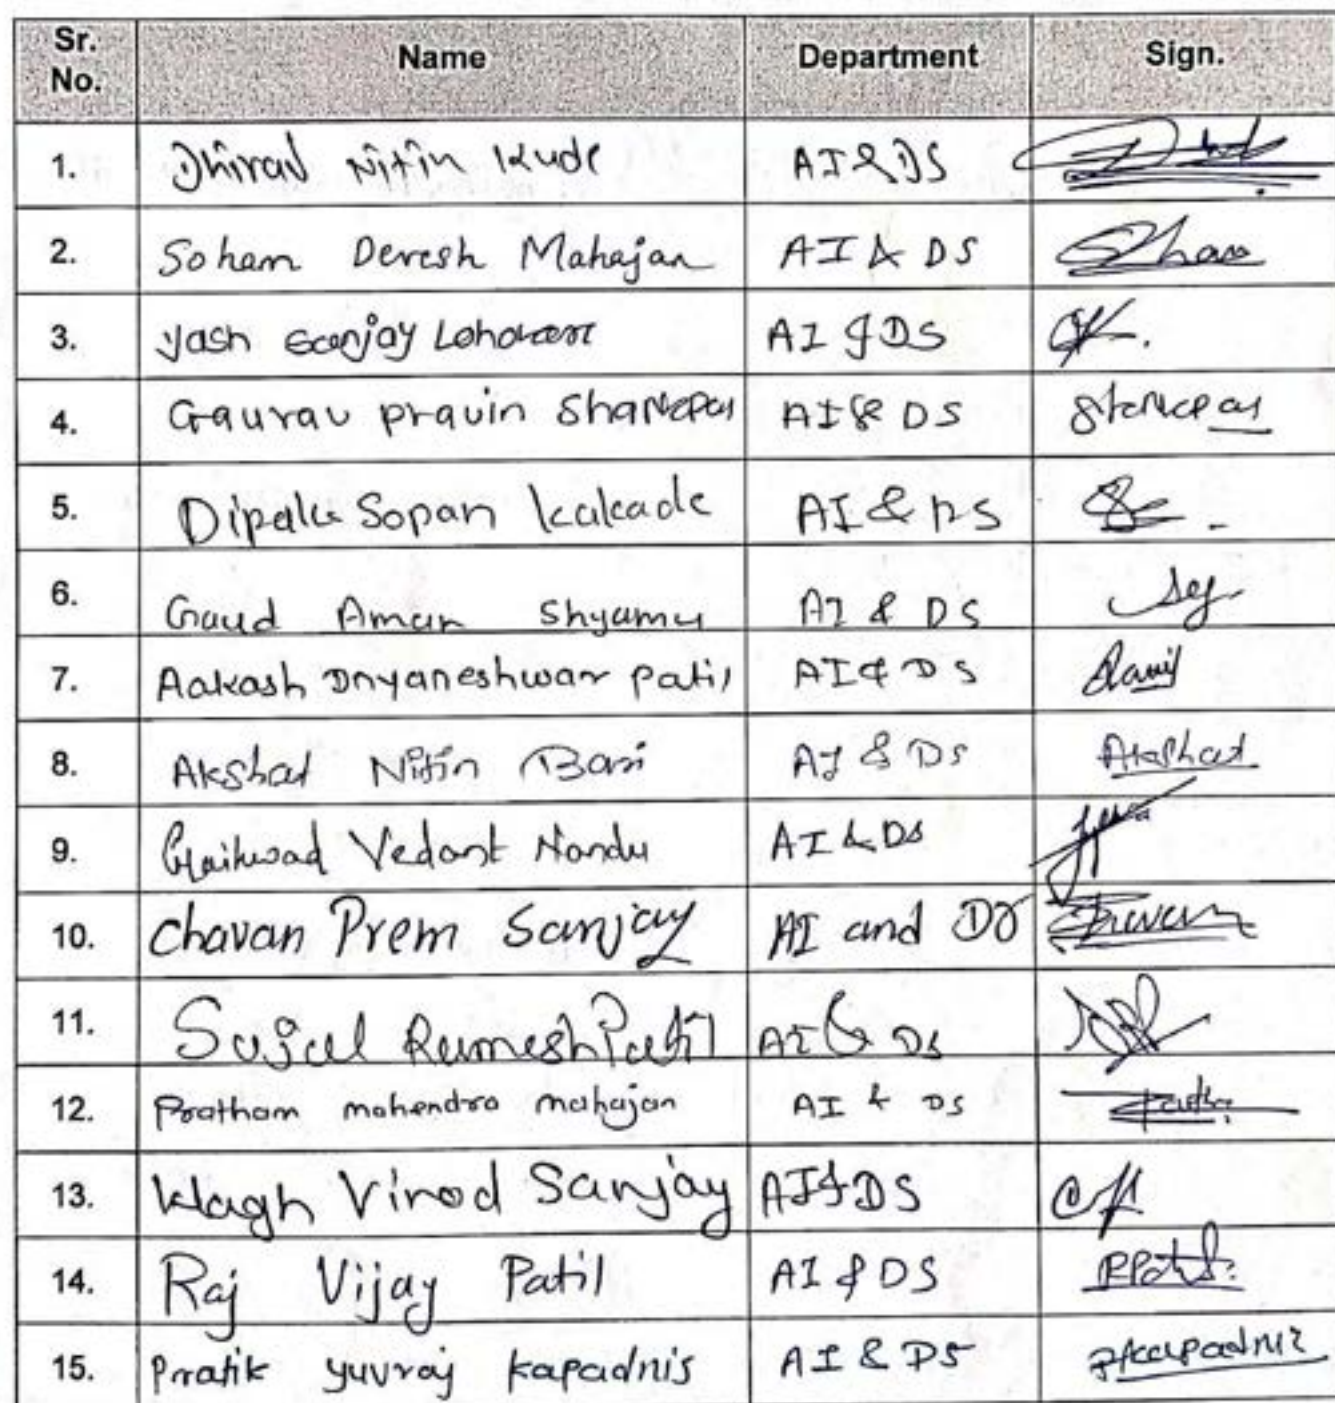 Sr. No. Name Department Sign.
1. Dhiraj Nitin Kude AI & DS
2. Soham Devesh Mahajan AI & DS
3. Yash Sanjay AI & DS
4. Gaurav pravin AI & DS
5. Dipak Sopan kakade AI & DS
6. Gaud Aman Shyamu AI & DS
7. Aakash Dnyaneshwar patil AI & DS
8. Akshat Nitin Bari AI & DS Akshat
9. Gaikwad Vedant Nandu AI & DS
10. Chavan Prem Sanjay AI and DS
11. Sujal Ramesh Patil AI & DS
12. Pratham mahendra mahajan AI & DS
13. Wagh Vinod Sanjay AI & DS
14. Raj Vijay Patil AI & DS
15. Pratik yuvraj kapadnis AI & DS